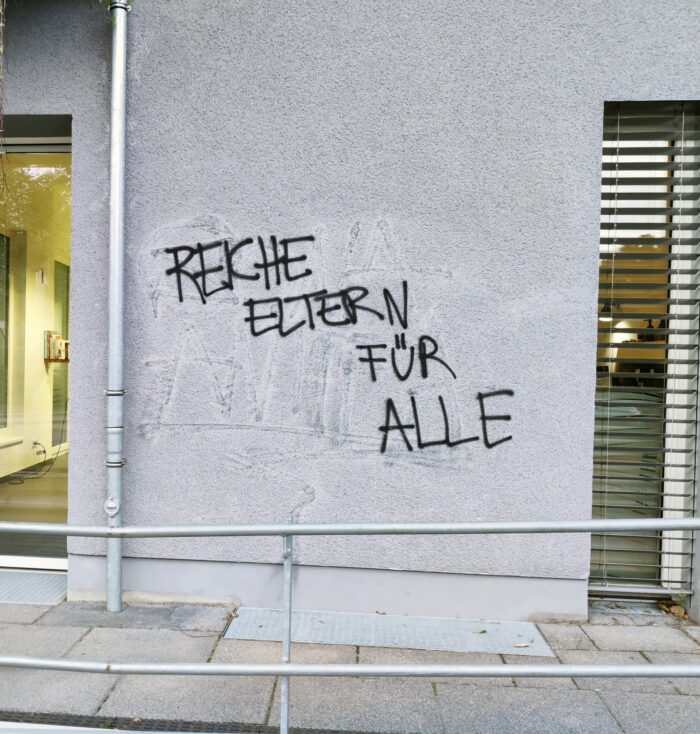 REICHE
ELTERN
FÜR
ALLE